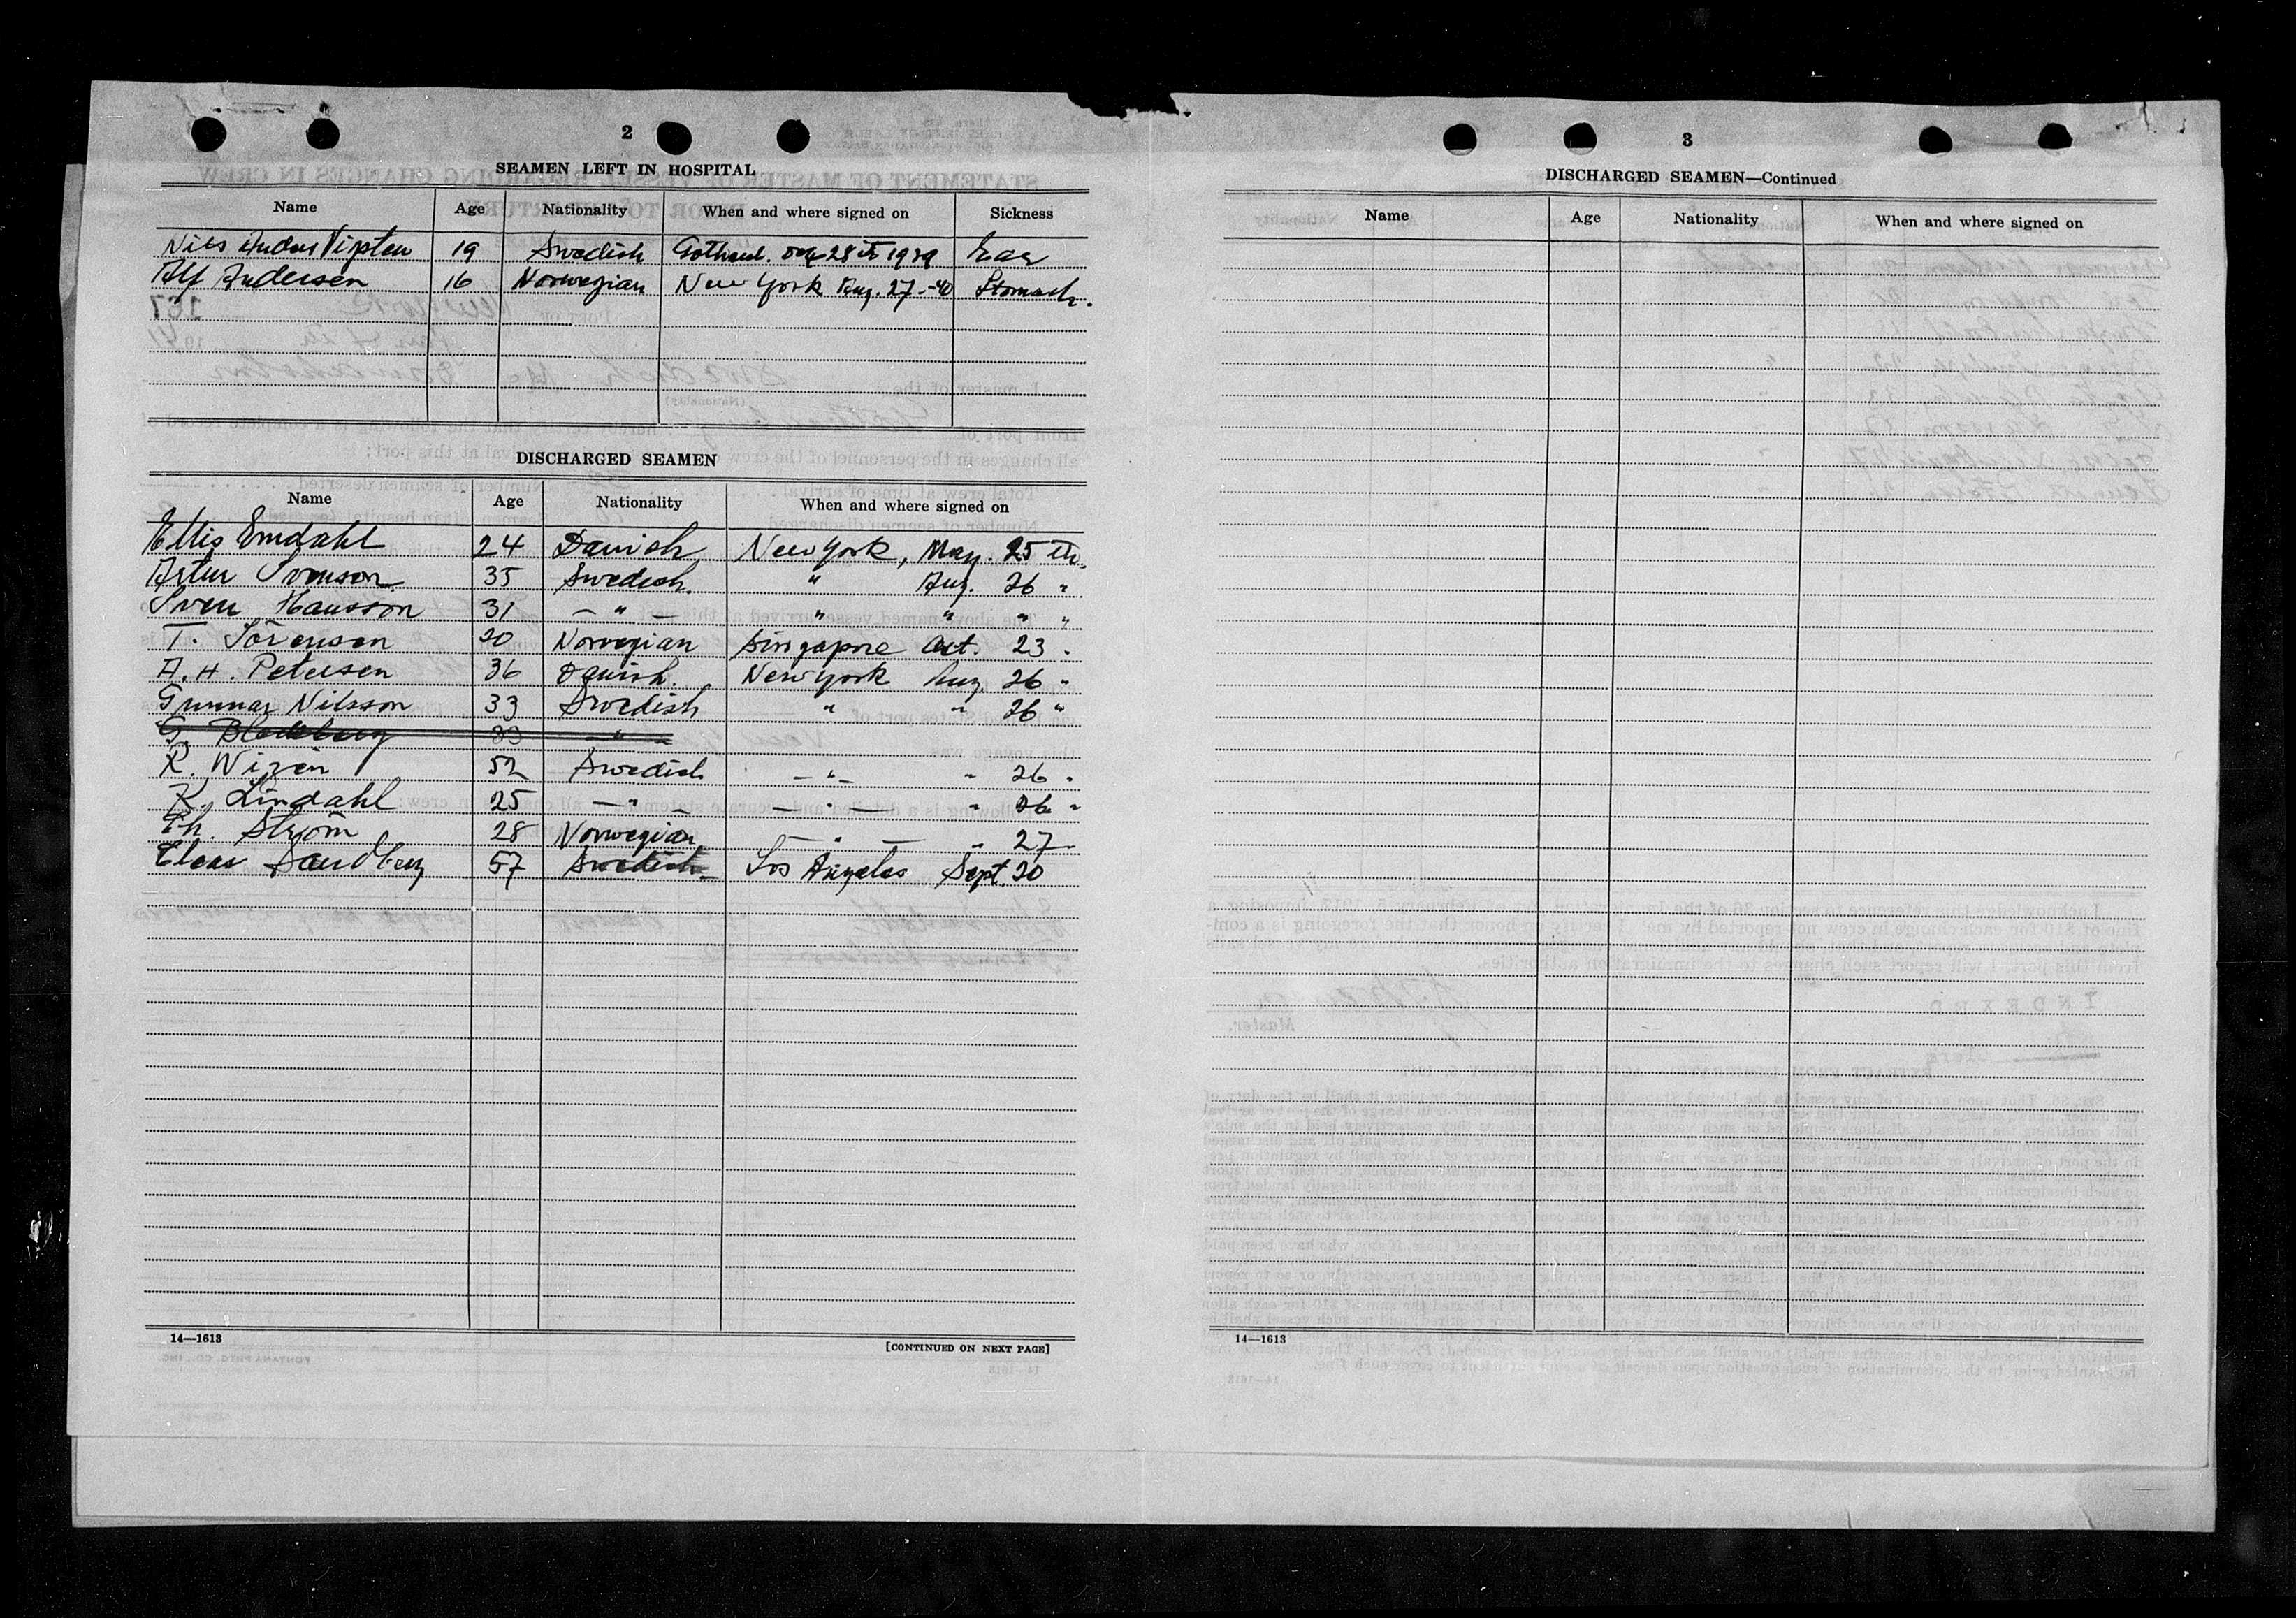 2
SEAMEN LEFT IN HOSPITAL
Name Age Nationality When and where signed on Sickness
Nils 19 Swedish 28 th 1939 Ear
Alf Andersen 16 Norwegian New York Aug. 27 -40 Stomach.
DISCHARGED SEAMEN
Name Age Nationality When and where signed on
Ellis Emdahl 24 Danish New York, May. 25 th.
Artur Svenson 35 Swedish. " Aug. 26 "
Sven Hansson 31 — " — " " " "
T. Sörensen 20 Norwegian Singapore Oct. 23 "
A. H. Petersen 36 Danish. New York Aug. 26 "
Gunnar Nilsson 33 Swedish " " 26 "
G. Blomberg 33 — " —
R. Wirén 52 Swedish — " — " 26 "
K. Lindahl 25 — " — " — " 26 "
Th. Strøm 28 Norwegian — " — " 27 -
Claas Sandberg 57 Swedish Los Angeles Sept. 20
14—1613
[CONTINUED ON NEXT PAGE]
3
DISCHARGED SEAMEN—Continued
Name Age Nationality When and where signed on
14—1613